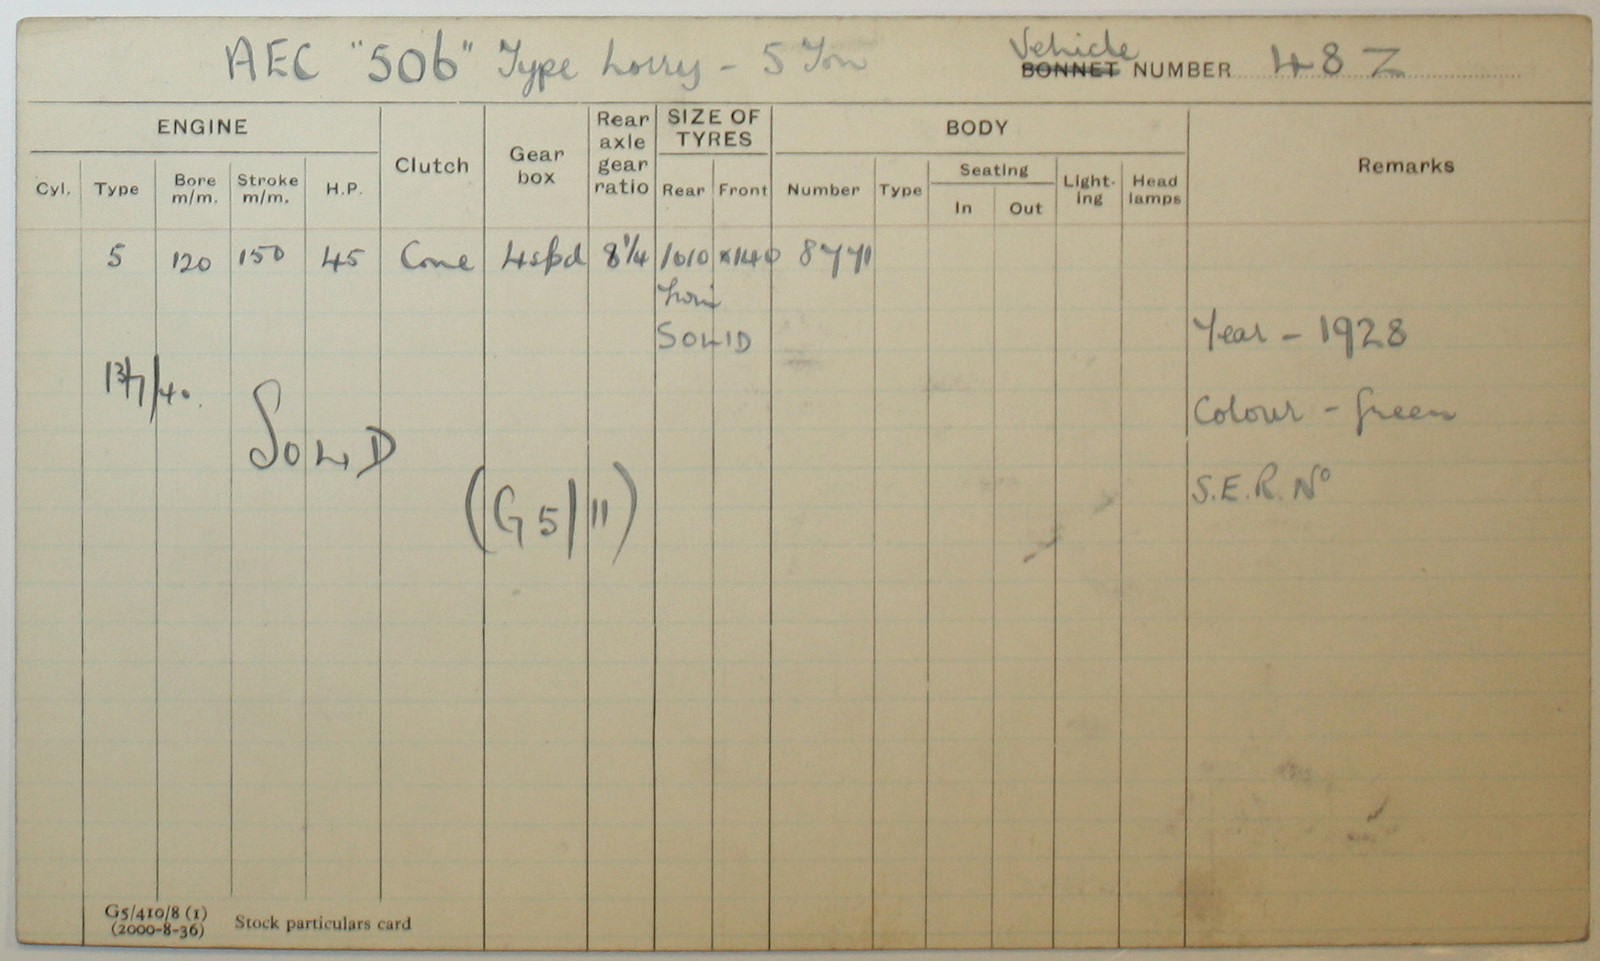 AEC "506" Type Lorry - 5 Ton
Vehicle
BONNET NUMBER 48 Z
ENGINE
Clutch
Gear box
Rear axle gear ratio
SIZE OF TYRES
BODY
Remarks
Cyl. Type Bore m/m. Stroke m/m. H.P.
Rear Front
Number Type Seating Light-ing Head lamps
In Out
5 120 150 45 Cone 4spd 8 1/4 1010 x 140 8771
Twin
SOLID
Year - 1928
13/7/40.
Colour - Green
SOLID
S.E.R. No
(G5/11)
G5/410/8 (1)
(2000-8-36)
Stock particulars card